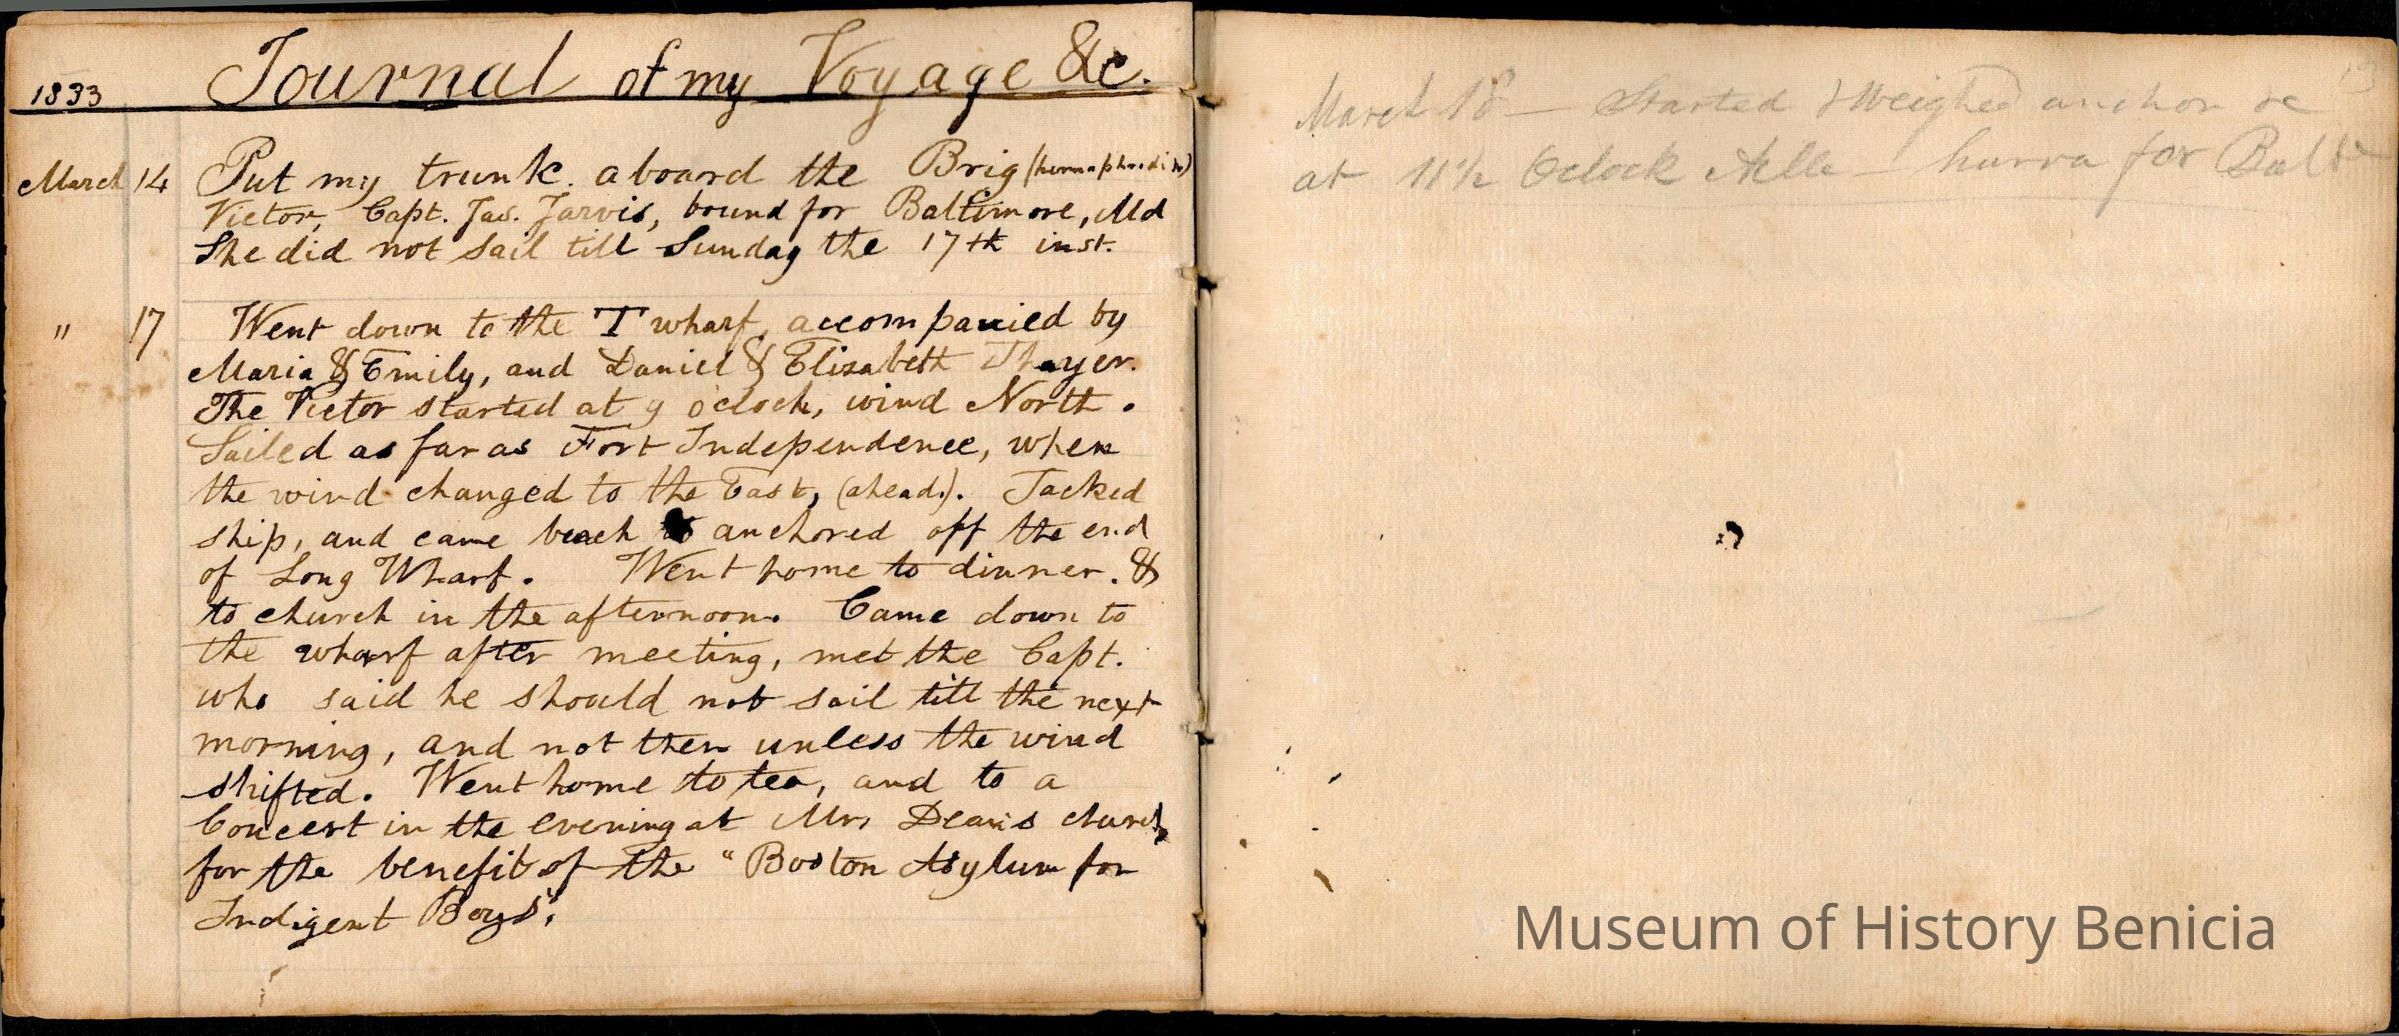 1833 Journal of my Voyage &c.
March 14 Put my trunk aboard the Brig (hermaphrodite)
Victor, Capt. Jas. Jarvis, bound for Baltimore, Md
She did not sail till Sunday the 17th inst.
" 17 Went down to the T wharf, accompanied by
Maria & Emily, and Daniel & Elizabeth Thayer.
The Victor started at 9 oclock, wind North.
Sailed as far as Fort Independence, when
the wind changed to the East, (ahead.). Tacked
ship, and came back & anchored off the end
of Long Wharf. Went home to dinner. &
to church in the afternoon. Came down to
the wharf after meeting, met the Capt.
who said he should not sail till the next
morning, and not then unless the wind
shifted. Went home to tea, and to a
Concert in the evening at Mr. Deans church,
for the benefit of the "Boston Asylum for
Indigent Boys".
March 18 — Started & Weighed anchor
at 11 1/2 Oclock — hurra for Balte
Museum of History Benicia